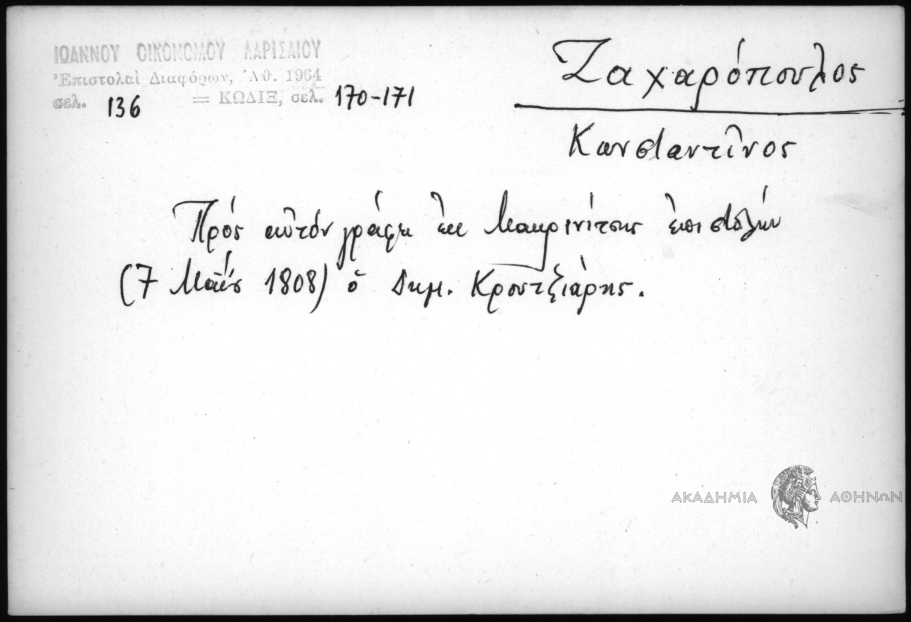 ΙΩΑΝΝΟΥ ΟΙΚΟΝΟΜΟΥ ΛΑΡΙΣΑΙΟΥ
Ἐπιστολαὶ Διαφόρων, Ἀθ. 1964
σελ. 136 = ΚΩΔΙΞ, σελ. 170-171
Ζαχαρόπουλος
Κωνσταντῖνος
Πρός αὐτόν γράφει ἐκ Μακρινίτσης ἐπιστολήν
(7 Μαΐου 1808) ὁ Δημ. Κρουτζιάρης.
ΑΚΑΔΗΜΙΑ ΑΘΗΝΩΝ